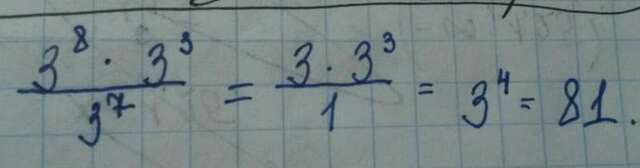 3⁸ · 3³ / 3⁷ = 3 · 3³ / 1 = 3⁴ = 81.